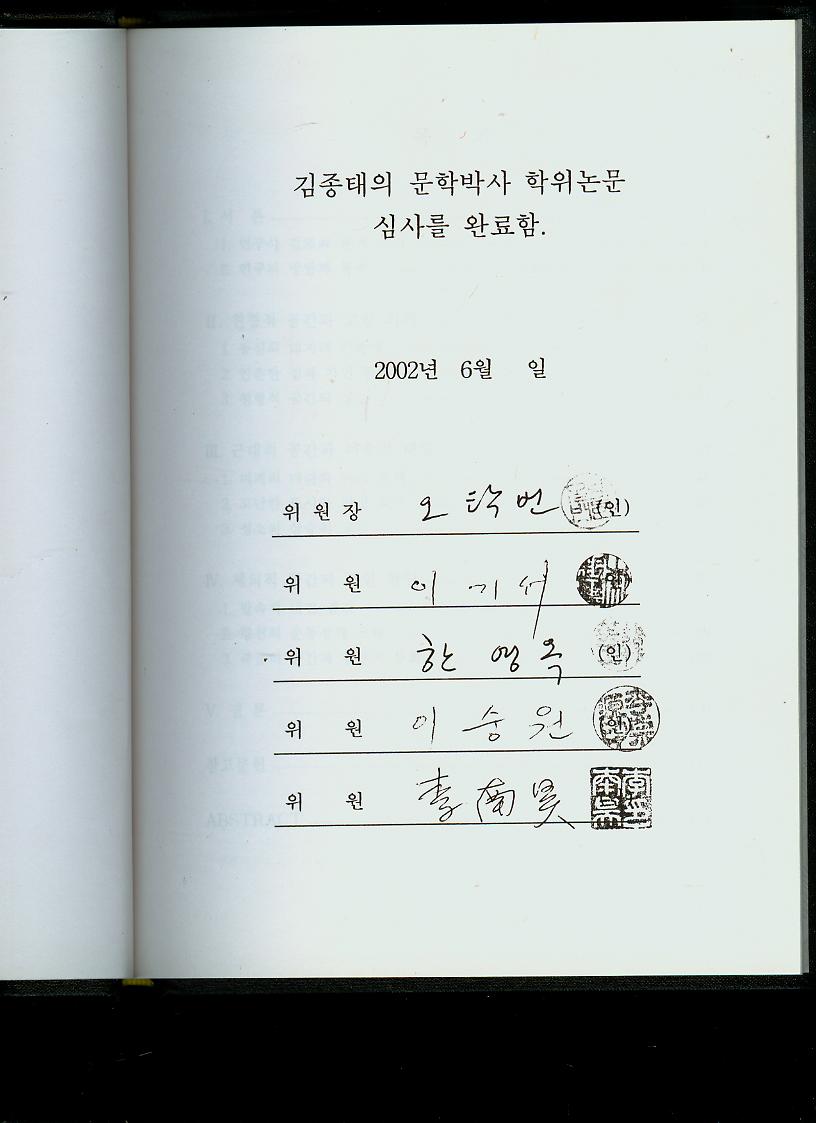 김종태의 문학박사 학위논문
심사를 완료함.
2002년 6월 일
위 원 장 오 탁 번 (인)
위 원 이 기 서 (인)
위 원 한 영 옥 (인)
위 원 이 숭 원 (인)
위 원 李 南 昊
ABSTRACT